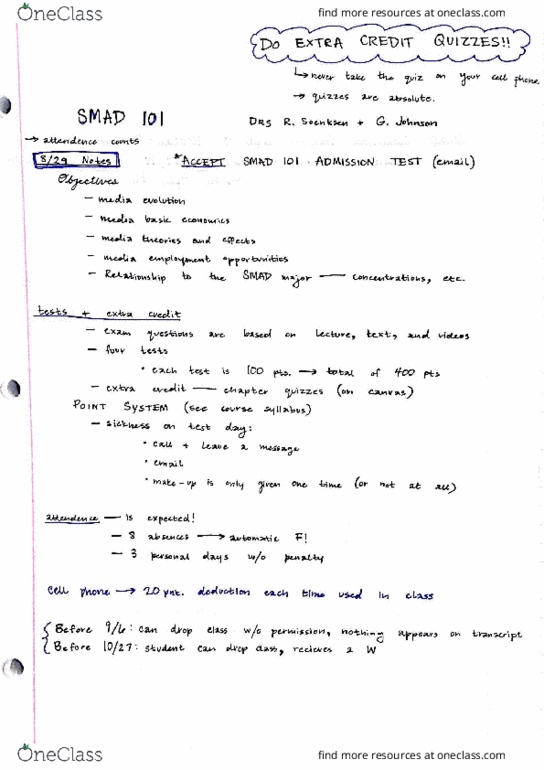 OneClass
find more resources at oneclass.com
DO EXTRA CREDIT QUIZZES!!
↳ never take the quiz on your cell phone
→ quizzes are absolute.
SMAD 101
DRS R. Soenksen + G. Johnson
→ attendence counts
8/29 Notes
*ACCEPT SMAD 101 ADMISSION TEST (email)
Objectives
— media evolution
— media basic economics
— media theories and effects
— media employment opportunities
— Relationship to the SMAD major — concentrations, etc.
tests + extra credit
— exam questions are based on lecture, text, and videos
— four tests
• each test is 100 pts. → total of 400 pts
— extra credit — chapter quizzes (on canvas)
POINT SYSTEM (see course syllabus)
— sickness on test day:
• call + leave a message
• email
• make-up is only given one time (or not at all)
attendence — is expected!
— 8 absences → automatic F!
— 3 personal days w/o penalty
cell phone → 20 pnt. deduction each time used in class
Before 9/6: can drop class w/o permission, nothing appears on transcript
Before 10/27: student can drop class, recieves a W
OneClass
find more resources at oneclass.com